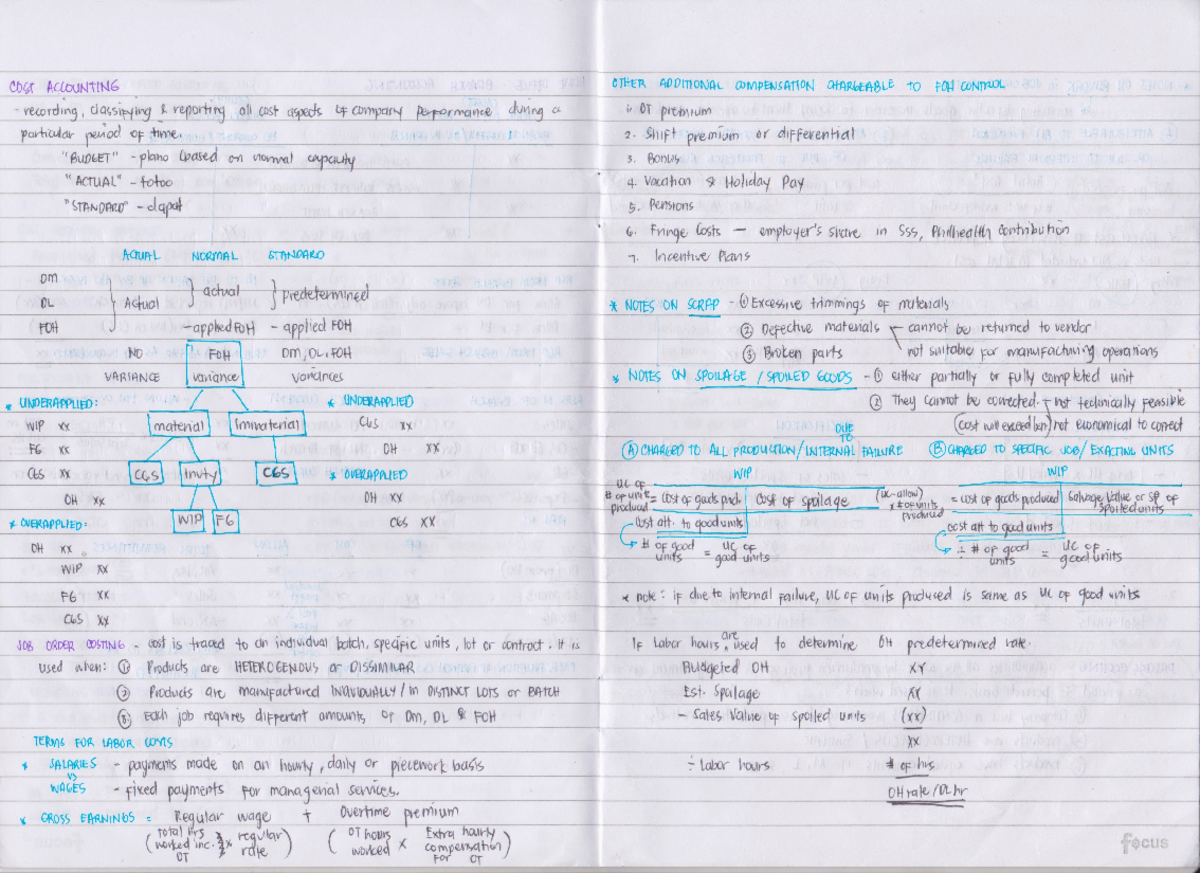 COST ACCOUNTING
- recording, classifying & reporting all cost aspects of company performance during a
particular period of time.
"BUDGET" - plano (based on normal capacity
"ACTUAL" - totoo
"STANDARD" - dapat
ACTUAL NORMAL STANDARD
DM
DL Actual actual predetermined
FOH - applied FOH - applied FOH
NO FOH DM, DL, FOH
VARIANCE variance variances
* UNDERAPPLIED: * UNDERAPPLIED
WIP xx material immaterial CGS xx
FG xx OH xx
CGS xx CGS Invty CGS * OVERAPPLIED
OH xx OH xx
* OVERAPPLIED: WIP FG CGS XX
OH xx
WIP xx
FG xx
CGS xx
JOB ORDER COSTING - cost is traced to an individual batch, specific units, lot or contract. It is
used when: ① Products are HETEROGENOUS or DISSIMILAR
② Products are manufactured INDIVIDUALLY / IN DISTINCT LOTS or BATCH
③ Each job requires different amounts of DM, DL & FOH
TERMS FOR LABOR COSTS
* SALARIES - payments made on an hourly, daily or piecework basis
vs
WAGES - fixed payments for managerial services.
* GROSS EARNINGS = Regular wage + Overtime premium
(total hrs worked inc. OT x regular rate) (OT hours worked x Extra hourly compensation for OT)
OTHER ADDITIONAL COMPENSATION CHARGEABLE TO FOH CONTROL
1. OT premium
2. Shift premium or differential
3. Bonus
4. Vacation & Holiday Pay
5. Pensions
6. Fringe Costs — employer's share in SSS, Philhealth contribution
7. Incentive Plans
* NOTES ON SCRAP - ① Excessive trimmings of materials
② Defective materials cannot be returned to vendor
③ Broken parts not suitable for manufacturing operations
* NOTES ON SPOILAGE / SPOILED GOODS - ① either partially or fully completed unit
② They cannot be corrected. not technically feasible
(cost will exceed bn) not economical to correct
Ⓐ CHARGED TO ALL PRODUCTION / DUE TO INTERNAL FAILURE Ⓑ CHARGED TO SPECIFIC JOB / EXACTING UNITS
WIP WIP
UC of # of units produced = cost of goods prod. Cost of spoilage (UC-allow) x # of units produced = cost of goods produced Salvage Value or SP of spoiled units
Cost att. to good units cost att to good units
# of good units = UC of good units ÷ # of good units = UC of good units
* note: if due to internal failure, UC of units produced is same as UC of good units
If Labor hours are used to determine OH predetermined rate.
Budgeted OH XY
Est. Spoilage XX
- Sales Value of spoiled units (xx)
xx
÷ Labor hours # of hrs
OH rate / DL hr
focus